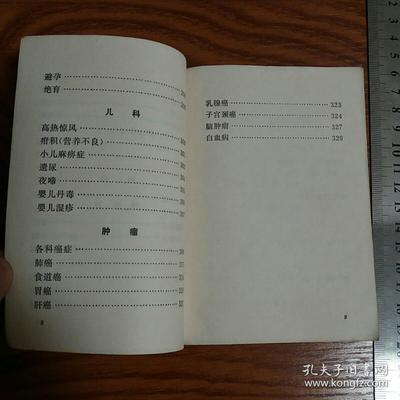 避孕
绝育
儿 科
高热惊风
疳积(营养不良)
小儿麻痹症
遗尿
夜啼
婴儿丹毒
婴儿湿疹
肿 瘤
各科癌症
肺癌
食道癌
胃癌
肝癌
8
乳腺癌 323
子宫颈癌 324
脑肿瘤 327
白血病 329
孔夫子旧书网
www.kongfz.com